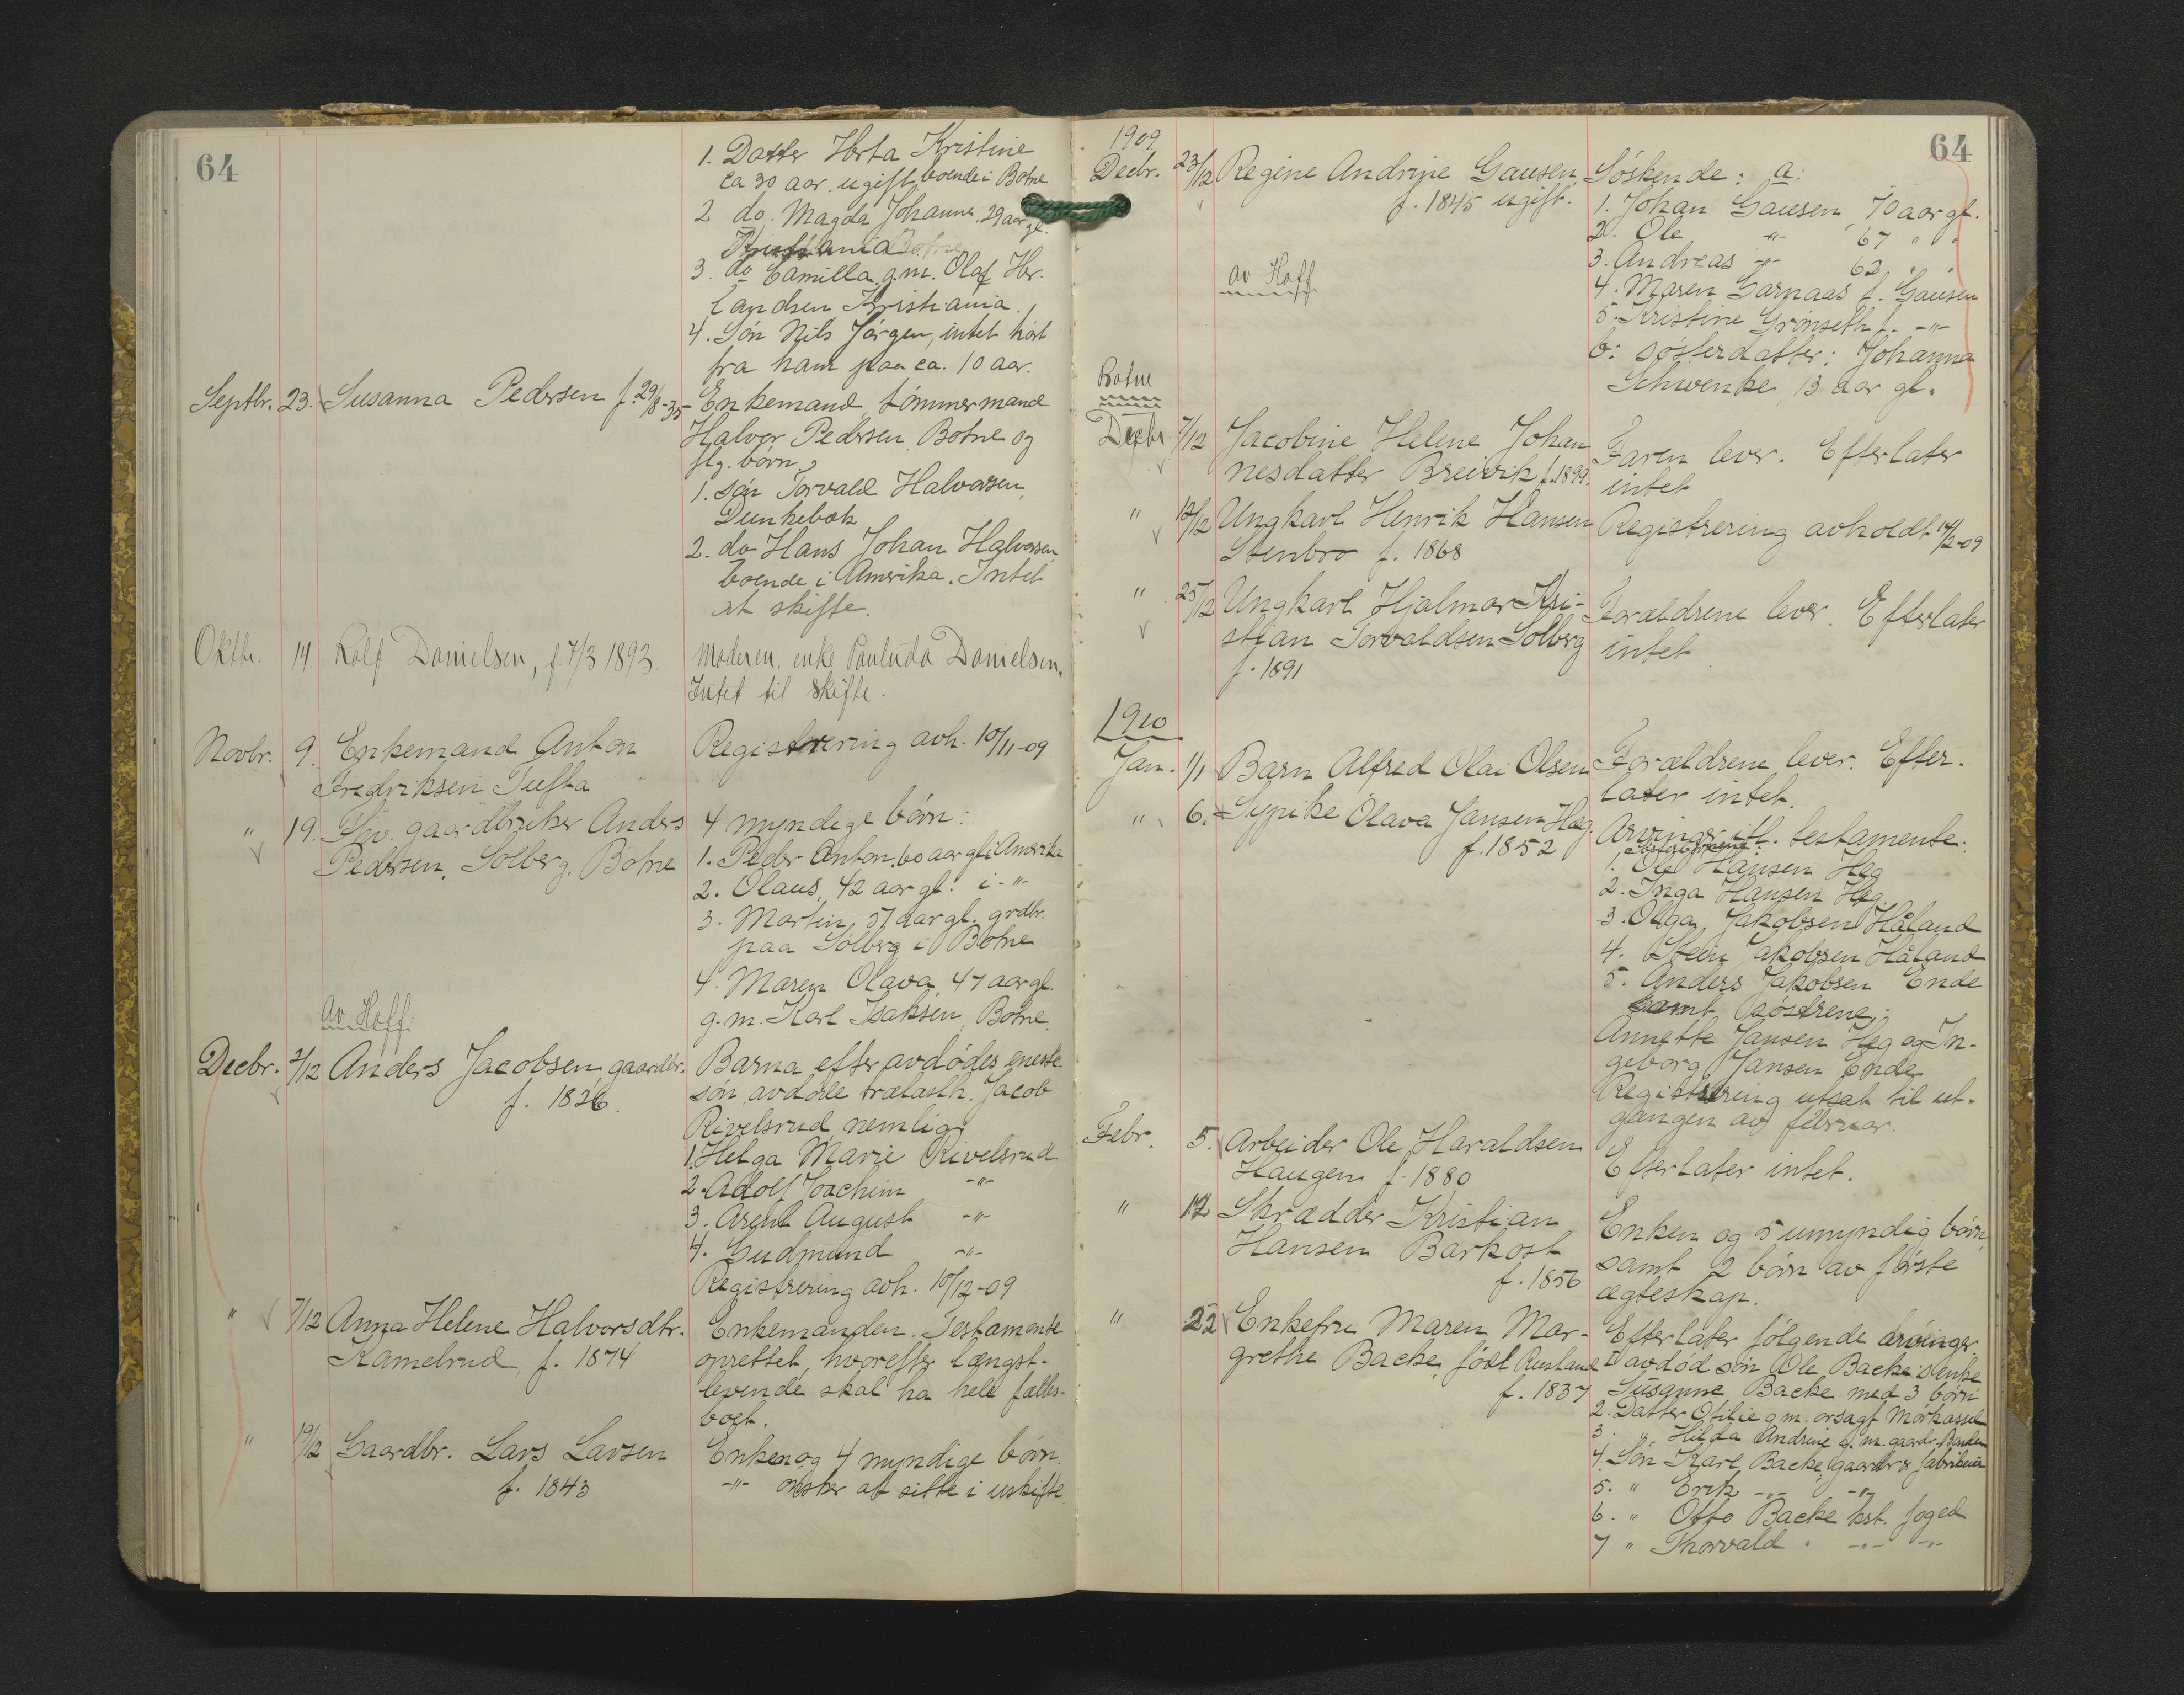 64
1. Datter Herta Kristine
ca 30 aar ugift boende i Botne
2 do. Magda Johanna, 29 aar gl.
Kristiania Botne
3. do Camilla g.m. Olaf Hr.
landsen Kristiania.
4. Søn Nils Jørgen, intet hørt
fra ham paa ca. 10 aar.
Septbr. 23. Susanna Pedersen f. 29/8-35
Enkemand, tømmermand
Halvor Pedersen Botne og
flg. børn,
1. søn Torvald Halvorsen,
Dunkebæk
2. do Hans Johan Halvorsen
boende i Amerika. Intet
at skifte.
Oktbr. 14. Rolf Danielsen, f. 7/3 1893.
Moderen, enke Danielsen.
Intet til skifte.
Novbr. 9. Enkemand Anton
Fredriksen Tufta
Registrering avh. 10/11-09
" 19. Fhv. gaardbruker Anders
Pedersen, Solberg, Botne
4 myndige børn:
1. Peder Anton, 60 aar gl i Amerika
2. Olaus, 42 aar gl. i -"-
3. Martin, 51 aar gl. grdbr.
paa Solberg i Botne
4. Maren Olava, 47 aar gl.
g.m. Karl Isaksen, Botne.
Av Hoff:
Decbr. 2/12 Anders Jacobsen, gaardbr.
f. 1826.
Barna efter avdødes eneste
søn avdøde trælasth. Jacob
Rivelsrud nemlig:
1. Helga Marie Rivelsrud
2. Adolf Joachim -"-
3. Arent August -"-
4. Gudmund -"-
Registrering avh. 10/12-09
" 7/12 Anna Helene Halvorsdtr.
Kamelrud, f. 1874
Enkemanden. Testamente
oprettet, hvorefter længst-
levende skal ha hele fælles-
boet.
" 19/12 Gaardbr. Lars Larsen
f. 1843
Enken og 4 myndige børn.
-"- ønsker at sitte i uskifte
64
1909
Decbr. 23/12 Regine Andrine Gausen
f. 1845 ugift.
av Hoff
Søskende: a:
1. Johan Gausen, 70 aar gl.
2. Ole -"- 67 " "
3. Andreas -"- 62 " "
4. Maren Garnaas f. Gausen
5. Kristine Grønseth f. -"-
b: søsterdatter: Johanna
Schwenke 13 aar gl.
Botne
Decbr 7/12 Jacobine Helene Johan
nesdatter Breivik f. 1899.
Faren lever. Efterlater
intet
" 12/12 Ungkarl Henrik Hansen
Stenbro f. 1868
Registrering avholdt 14/12-09
" 25/12 Ungkarl Hjalmar Kri-
stian Torvaldsen Solberg
f. 1891
Forældrene lever. Efterlater
intet
1910
Jan. 1/1 Barn Alfred Olai Olsen
Forældrene lever. Efter-
later intet.
" 6. Sypike Olava Jansen Heg.
f. 1852
Arvinger itl. testamente:
Søsterbørnene:
1. Ole Hansen Heg
2. Inga Hansen Heg.
3. Olga Jakobsen Håland
4. Jakobsen Håland
5. Anders Jakobsen Ende
samt søstrene:
Annette Jansen Heg og In-
geborg Jansen Ende
Registrering utsat til ut-
gangen av februar.
Febr. 5. Arbeider Ole Haraldsen
Haugen f. 1880
Efterlater intet.
" 12 Skrædder Kristian
Hansen Barkost
f. 1856
Enken og 5 umyndig børn
samt 2 børn av første
ægteskap.
" 22 Enkefru Maren Mar-
grethe Backe, født Rusland
f. 1837
Efterlater følgende arvinger.
1 avdød søn Ole Backes enke
Susanne Backe med 3 børn
2. Datter Otilie g.m. Mørkassel
3. " Hilda Andrine g.m. gaardr.
4. Søn Karl Backe, gaardbr &
5. " Erik -"- -"-
6. " Otto Backe kst. foged
7 " Thorvald " -"- -"-